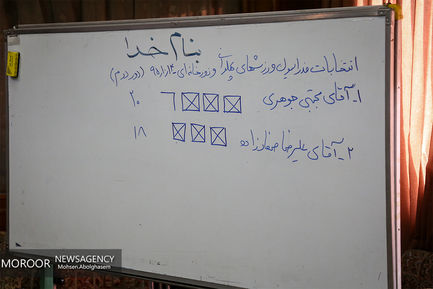 بنام خدا
انتخابات فدراسیون ورزشهای پهلوانی و زورخانه‌ای (دور دوم)
۱_ آقای مجتبی جوهری ۲۰
۲_ آقای علیرضا صفارزاده ۱۸
MOROOR NEWSAGENCY
Mohsen Abolghasem